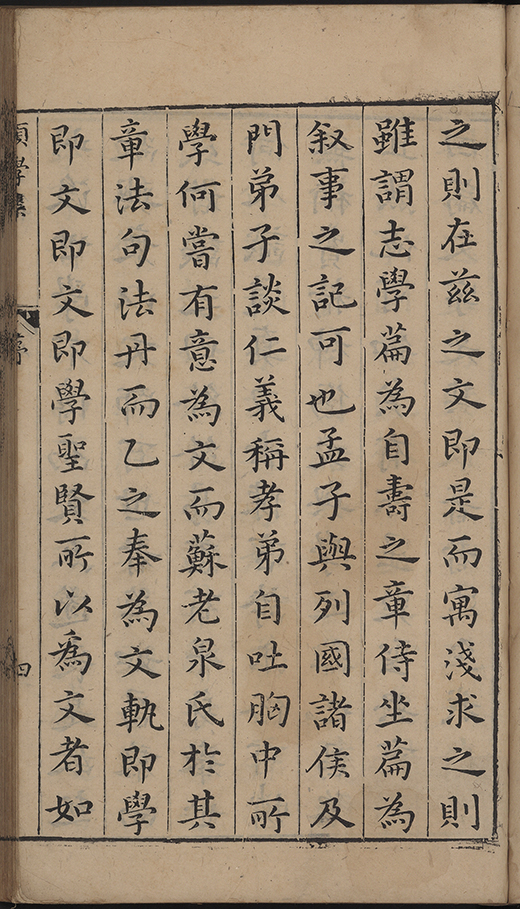 之則在茲之文即是而寓淺求之則
雖謂志學篇為自壽之章侍坐篇為
叙事之記可也孟子與列國諸侯及
門弟子談仁義稱孝弟自吐胸中所
學何嘗有意為文而蘇老泉氏於其
章法句法丹而乙之奉為文軌即學
即文即文即學聖賢所以爲文者如
序
四